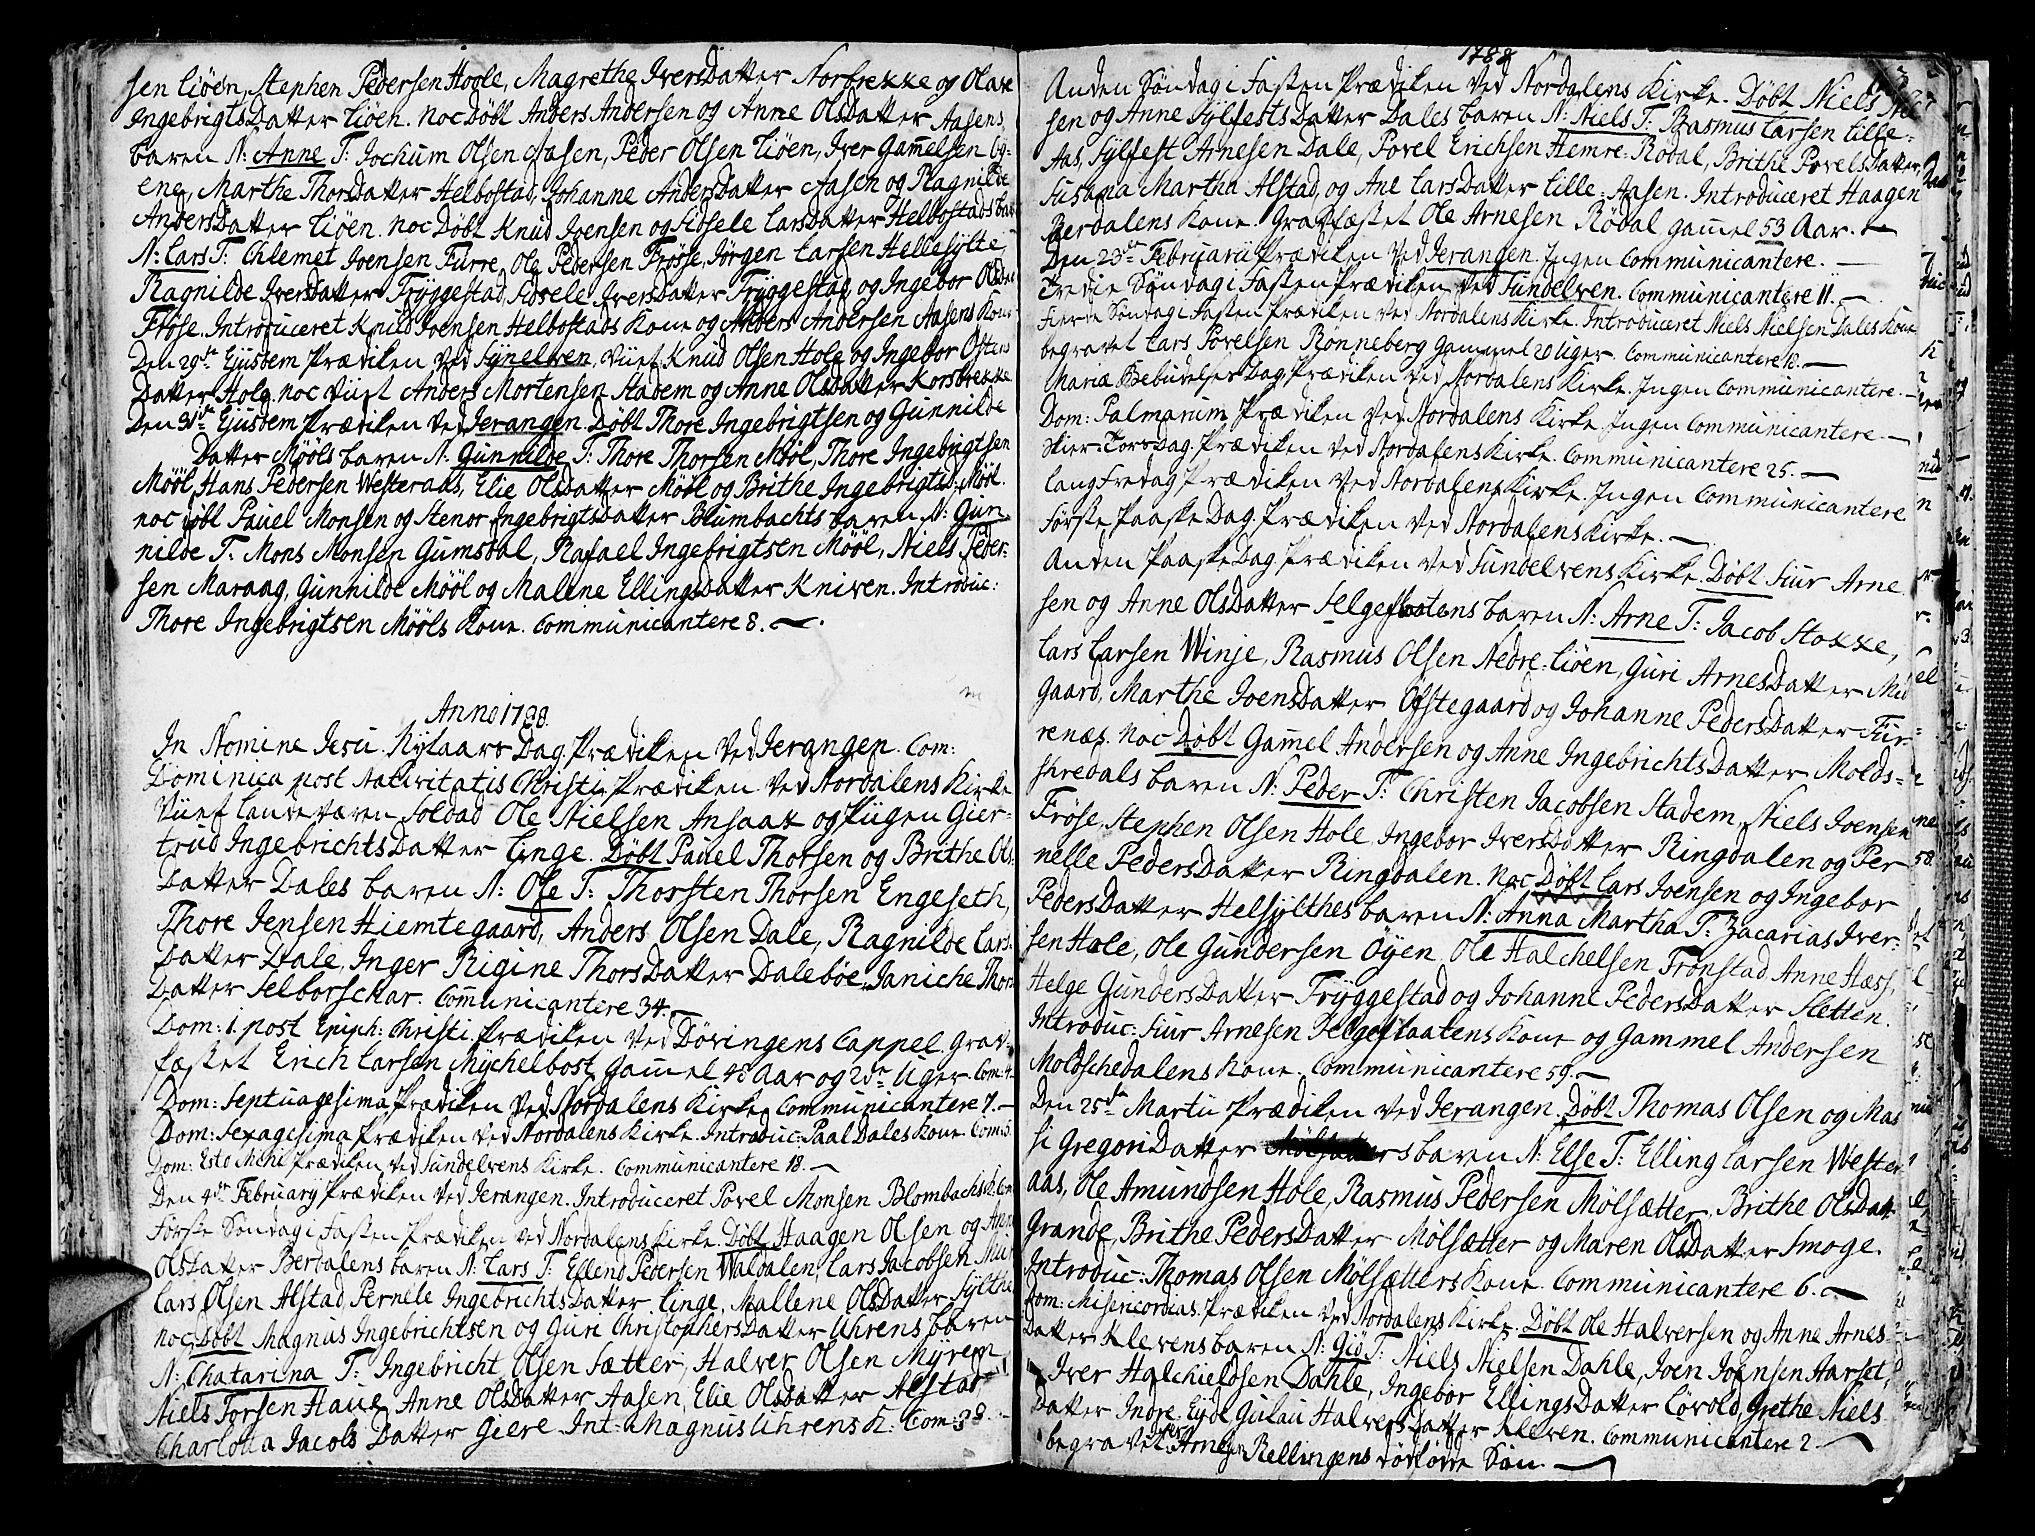 sen Liöen, Stephen Pedersen Hoole, Magrethe IversDatter Norbrekke og Olave
IngebrigtsDatter Liöen. noc döbt Anders Andersen og Anne OlsDatter Aasens
baren N: Anne T: Jochum Olsen Aasen, Peder Olsen Liöen, Iver Gam̄elsen
ene, Marthe ThorsDatter Helbostad, Johanne AndersDatter Aasen og Ragnilde
AndersDatter Liöen. noc Döbt Knud Joensen og Sidsele LarsDatter Helbostads bar
N: Lars T: Chlemet Joensen Furre, Ole Pedersen Frösse, Jörgen Larsen Hellesylte
Ragnilde IversDatter Tryggestad, Sidsele IversDatter Tryggestad og Ingebor Olsdr
Fröse. Introduceret Knud Joensen Helbostads Kone og Anders Andersen Aasens Kone
Den 29de Ejusdem Prædiken ved Synelven, viiet Knud Olsen Hole og Ingebor Ostens
Datter Hole. noc viiet Anders Mortensen Stadem og Anne OlsDatter Korsbrekke.
Den 31te Ejusdem Prædiken ved Ierangen. Döbt Thore Ingebrigtsen og Gunnilde
Datter Mööls baren N: Gunnilde T: Thore Thorsen Mööl, Thore Ingebrigtsen
Mööl, Hans Pedersen Westeraas, Elie OlsDatter Mööl og Brithe Ingebrigtsd: Mööl.
noc döbt Pauel Monsen og Stenor IngebrigtsDatter Blumbachts baren N: Gun
nilde T: Mons Monsen Gumsdal, Rafael Ingebrigtsen Mööl, Niels Peder-
sen Maraag, Gunnilde Mööl og Malene EllingsDatter Kniven. Introduc:
Thore Ingebrigtsen Mööls Kone. Communicantere 8.
Anno 1788.
In Nomine Jesu. NytaarsDag. Prædiken ved Ierangen. Com:
Dominica post Nativitatis Christi Prædiken ved Nordalens Kirke
Viiet Landeværn Soldad Ole Nielsen Ansaak og Pugen Gier-
trud IngebrichtsDatter Linge. Döbt Pauel Thorsen og Brithe Ols
Datter Dales baren N: Ole T: Thorsten Thorsen Engeseth,
Thore Jensen Hiemtegaard, Anders Olsen Dale, Ragnilde Lars
Datter Dale, Inger Rigine ThorsDatter Daleböe, Janiche Thors
Datter Selborschar. Com̄unicantere 34.
Dom: 1. post Epiph: Christi. Prædiken ved Döringens Cappel. Grav-
fæstet Erich Larsen Mychelbost, Gam̄el 43 Aar og 20de Uger. Com: 4.
Dom: Septuagesima Prædiken ved Nordalens Kirke, Communicantere 7.
Dom: Sexagesima Prædiken ved Nordalens Kirke. Introduc: Paal Dales Kone. Com: 5.
Dom: Esto Mihi Prædiken ved Sundelvens Kirke. Communicantere 18.
Den 4de February Prædiken ved Ierangen. Introduceret Povel Monsen Blombachs K.
Förste Söndag i Fasten Prædiken ved Nordalens Kirke. Döbt Haagen Olsen og Anne
OlsDatter Berdalens baren N: Lars T: Ellend Pedersen Waldalen, Lars Jacobsen Mur
Lars Olsen Alstad, Pernele IngebrichtsDatter Linge, Mallene OlsDatter Sylthe
noc Döbt Magnus Ingebrichtsen og Guri ChristophersDatter Uhrens baren
N: Chatarina T: Ingebricht Olsen Sætter, Halver Olsen Myren,
Niels Torsen Haue, Anne OlsDatter Aasen, Elie OlsDatter Alstad,
Charlotta Jacobs Datter Giere. Int: Magnus Uhrens K: Com: 38.
1788
Anden Söndag i Fasten Prædiken ved Nordalens Kirke. Döbt Niels
sen og Anne SylfestsDatter Dales baren N: Niels T: Rasmus Larsen Lille-
Aas, Sylfest Arnesen Dale, Povel Erichsen Hemre-Rödal, Brithe PovelsDatter
Susana Martha Alstad, og Ane LarsDatter Lille-Aasen. Introduceret Haagen
Berdalens Kone. Gravfæstet Ole Arnesen Rödal gam̄el 53 Aar.
Den 23de Februarii Prædiken ved Ierangen. Ingen Communicantere.
Tredie Söndag i Fasten Prædiken ved Sundelven. Communicantere 11.
Fierde Söndag i Fasten Prædiken ved Nordalens Kirke. Introduceret Niels Nielsen Dales Kone
begravet Lars Povelsen Rönneberg Gammel 20 Uger. Communicantere 12.
Mariæ Bebudelses Dag Prædiken ved Nordalens Kirke. Ingen Communicantere.
Dom: Palmarum Prædiken ved Nordalens Kirke. Ingen Communicantere.
Skier-TorsDag. Prædiken ved Nordalens Kirke. Communicantere 25.
LangFredag Prædiken ved Nordalens Kirke. Ingen Communicantere
Förste PaaskeDag. Prædiken ved Nordalens Kirke.
Anden PaaskeDag Prædiken ved Sundelvens Kirke. Döbt Siur Arne
sen og Anne OlsDatter Selgeflaatens baren N: Arne T: Jacob Stokke,
Lars Larsen Winje, Rasmus Olsen Nedre-Liöen, Guri ArnesDatter Mid
Gaard, Marthe JoensDatter Ofstegaard og Johanne PedersDatter Fur-
renæs. noc Döbt Gam̄el Andersen og Anne IngebrichtsDatter Molds-
skredals baren N: Peder T: Christen Jacobsen Stadem, Niels Joensen
Fröse, Stephen Olsen Hole, Ingebor IversDatter Ringdalen og Per
nelle PedersDatter Ringdalen. Noc Döbt Lars Joensen og Ingebor
PedersDatter Helsylthes baren N: Anna Martha T: Zacarias Iver-
sen Hole, Ole Gundersen Öyen, Ole Halchelsen Tronstad, Anne Hæss,
Helge GundersDatter Tryggestad og Johanne PedersDatter Sletten.
Introduc: Siur Arnesen Selgeflaatens Kone og Gammel Andersen
Moldschedalens Kone. Communicantere 59.
Den 25de Martii Prædiken ved Ierangen. Döbt Thomas Olsen og Mas
si GregoriDatter baren N: Else T: Elling Larsen Wester
aas, Ole Amundsen Hole, Rasmus Pedersen Mölsætter, Brithe OlsDatt
Grande, Brithe PedersDatter Mölsætter og Maren OlsDatter Smoge.
Introduc: Thomas Olsen Mölsætters Kone. Communicantere 6.
Dom: Misericordias. Prædiken ved Nordalens Kirke. Döbt Ole Halversen og Anne Arnes
Datter Klevens baren N: Giö T: Niels Nielsen Dahle, Joen Joensen Harset,
Iver Halchieldsen Dahle, Ingebor EllingsDatter Lövold, Grethe Niels
Datter Indre-Eyde, Gulau HalversDatter Kleven. Communicantere 2.
begravet Arnesen Rellingens dödfödde Sön.